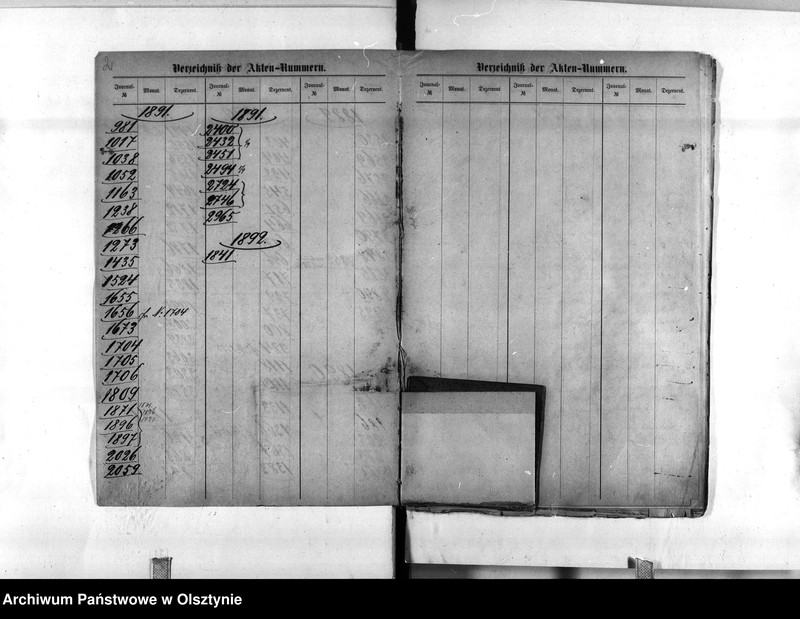 2
Verzeichniß der Akten-Nummern.
Journal- № Monat. Dezernent. Journal- № Monat. Dezernent. Journal- № Monat. Dezernent.
1891.
981
1017
1038
1052
1163
1238
1266
1273
1435
1524
1655
1656 № 1704
1673
1704
1705
1706
1809
1871
1896
1897
2026
2059
1891.
2400
2432
2451
2494
2724
2746
2965
1892.
1841
Verzeichniß der Akten-Nummern.
Journal- № Monat. Dezernent. Journal- № Monat. Dezernent. Journal- № Monat. Dezernent.
Archiwum Państwowe w Olsztynie